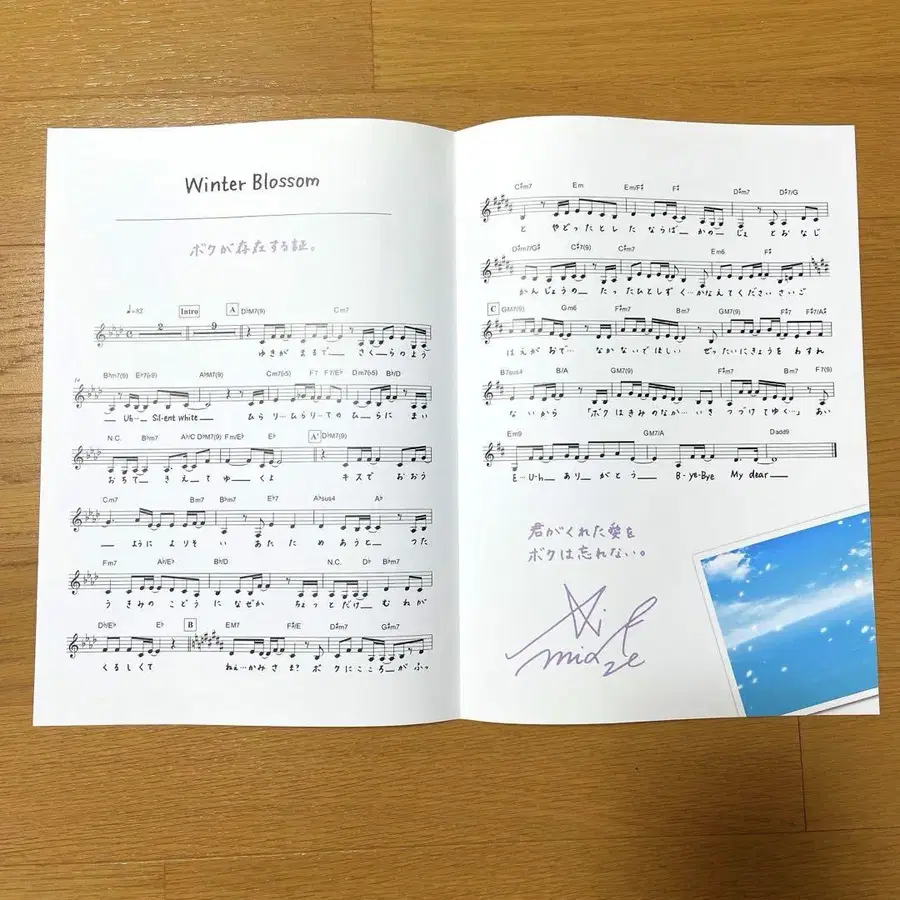 Winter Blossom
ボクが存在する証。
♩=83 Intro A D♭M7(9) Cm7
2 9
ゆきが まるで さくらのよう
B♭m7(9) E♭7(♭9) A♭M7(9) Cm7(♭5) F7 F7/E♭ Dm7(♭5) B♭/D
Uh Silent white ひらり…ひらり…てのひらにまい
N.C. B♭m7 A♭/C D♭M7(9) Fm/E♭ E♭ A' D♭M7(9)
おちて きえてゆくよ キスでおおう
Cm7 Bm7 B♭m7 E♭7 A♭sus4 A♭
ようによりそい あたためあうと つた
Fm7 A♭/E♭ B♭/D N.C. D♭ B♭m7
うきみのこどうに なぜか ちょっとだけ むねが
D♭/E♭ E♭ B EM7 F♯/E D♯m7 G♯m7
くるしくて ねぇ…かみさま? ボクにこころがふっ
C♯m7 Em Em/F♯ F♯ D♯m7 D♯7/G
と やどったとしたならば かのじょとおなじ
D♯m7/G♯ C♯7(9) C♯m7 Em6 F♯
かんじょうの たったひとしずく…かなえてください さいご
C GM7(9) Gm6 F♯m7 Bm7 GM7(9) F♯7 F♯7/A♯
はえがおで… なかないでほしい ぜったいにきょうをわすれ
B7sus4 B/A GM7(9) F♯m7 Bm7 F7(9)
ないから 「ボクはきみのなか…いきつづけてゆく…」 あい
Em9 GM7/A Dadd9
E…Uh ありがとう B-ye-Bye My dear
君がくれた愛を
ボクは忘れない。